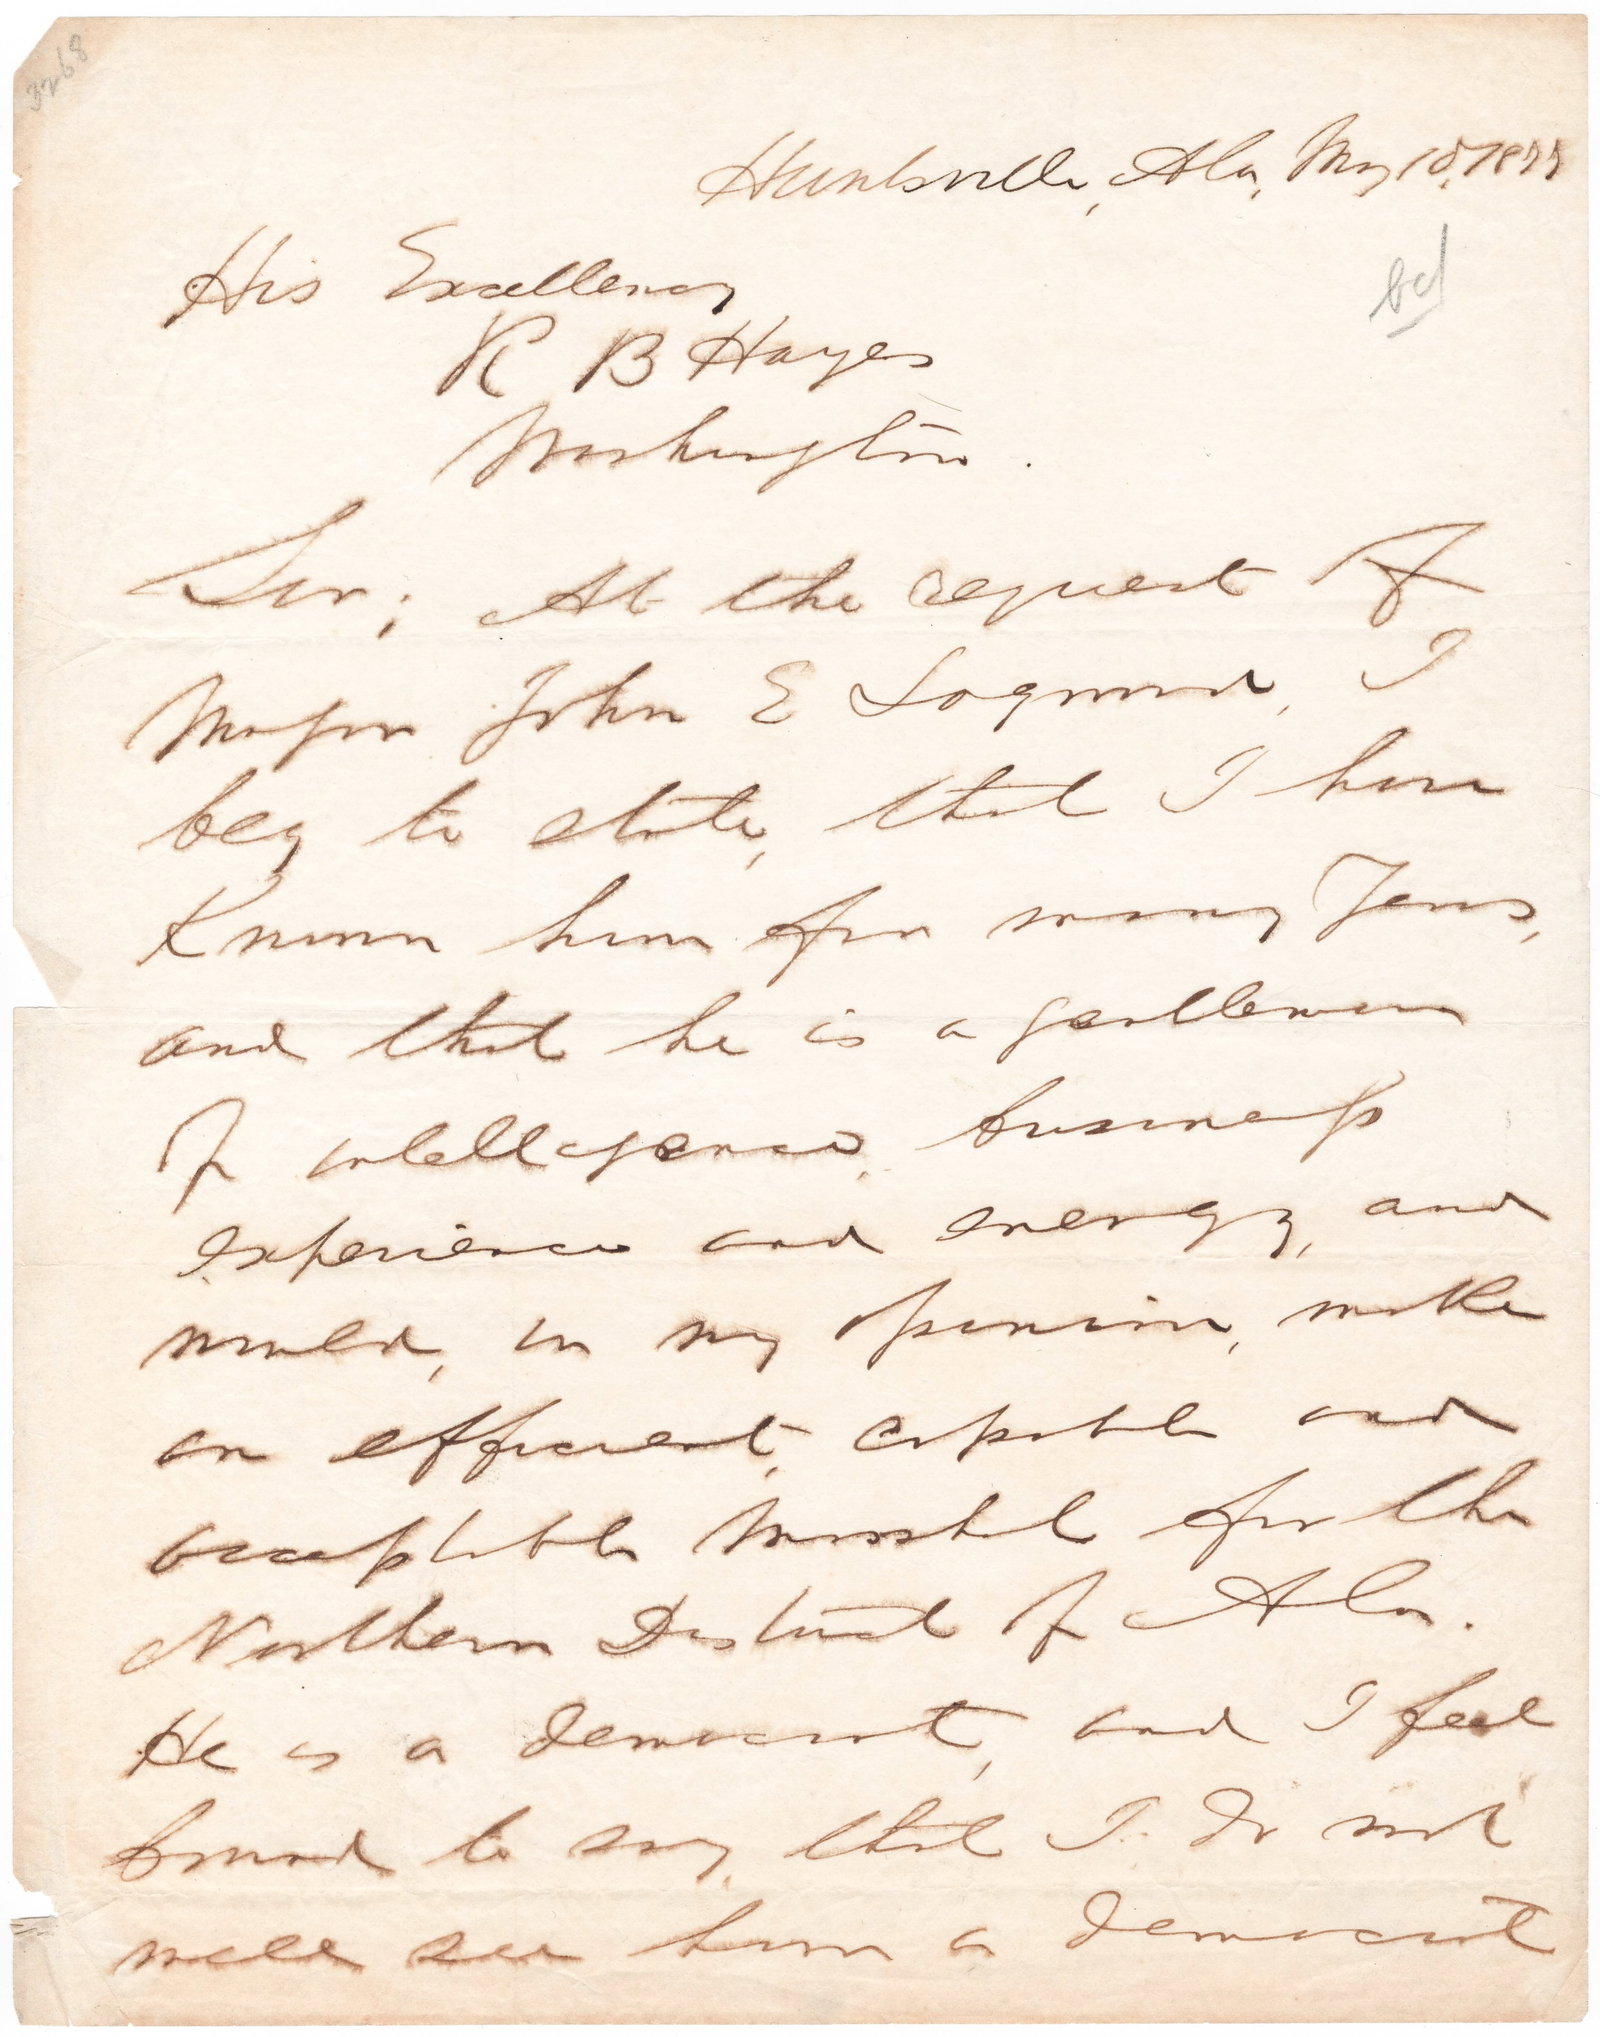 3268
Huntsville, Ala, May 15, 1877
bd
His Excellency
R B Hayes
Washington.
Sir; At the request of
Major John E I
beg to state, that I have
Known him for many Years,
and that he is a gentleman
of intelligence, business
experience and energy, and
would, in my opinion, make
an efficient, capable and
acceptable Marshal for the
Northern District of Ala.
He is a democrat, and I feel
bound to say, that I do not
well see how a democrat